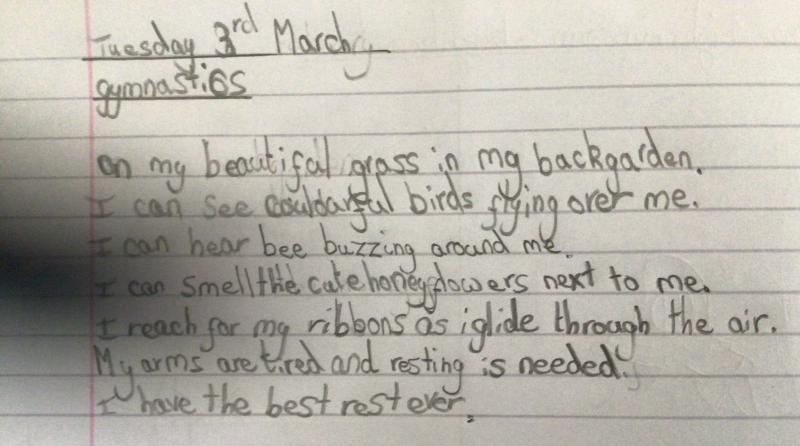 Tuesday 3rd March
gymnastics
on my beautifal grass in my backgarden.
I can see couldarful birds flying over me.
I can hear bee buzzing around me.
I can smell the cute honey flowers next to me.
I reach for my ribbons as i glide through the air.
My arms are tired and resting is needed.
I have the best rest ever.